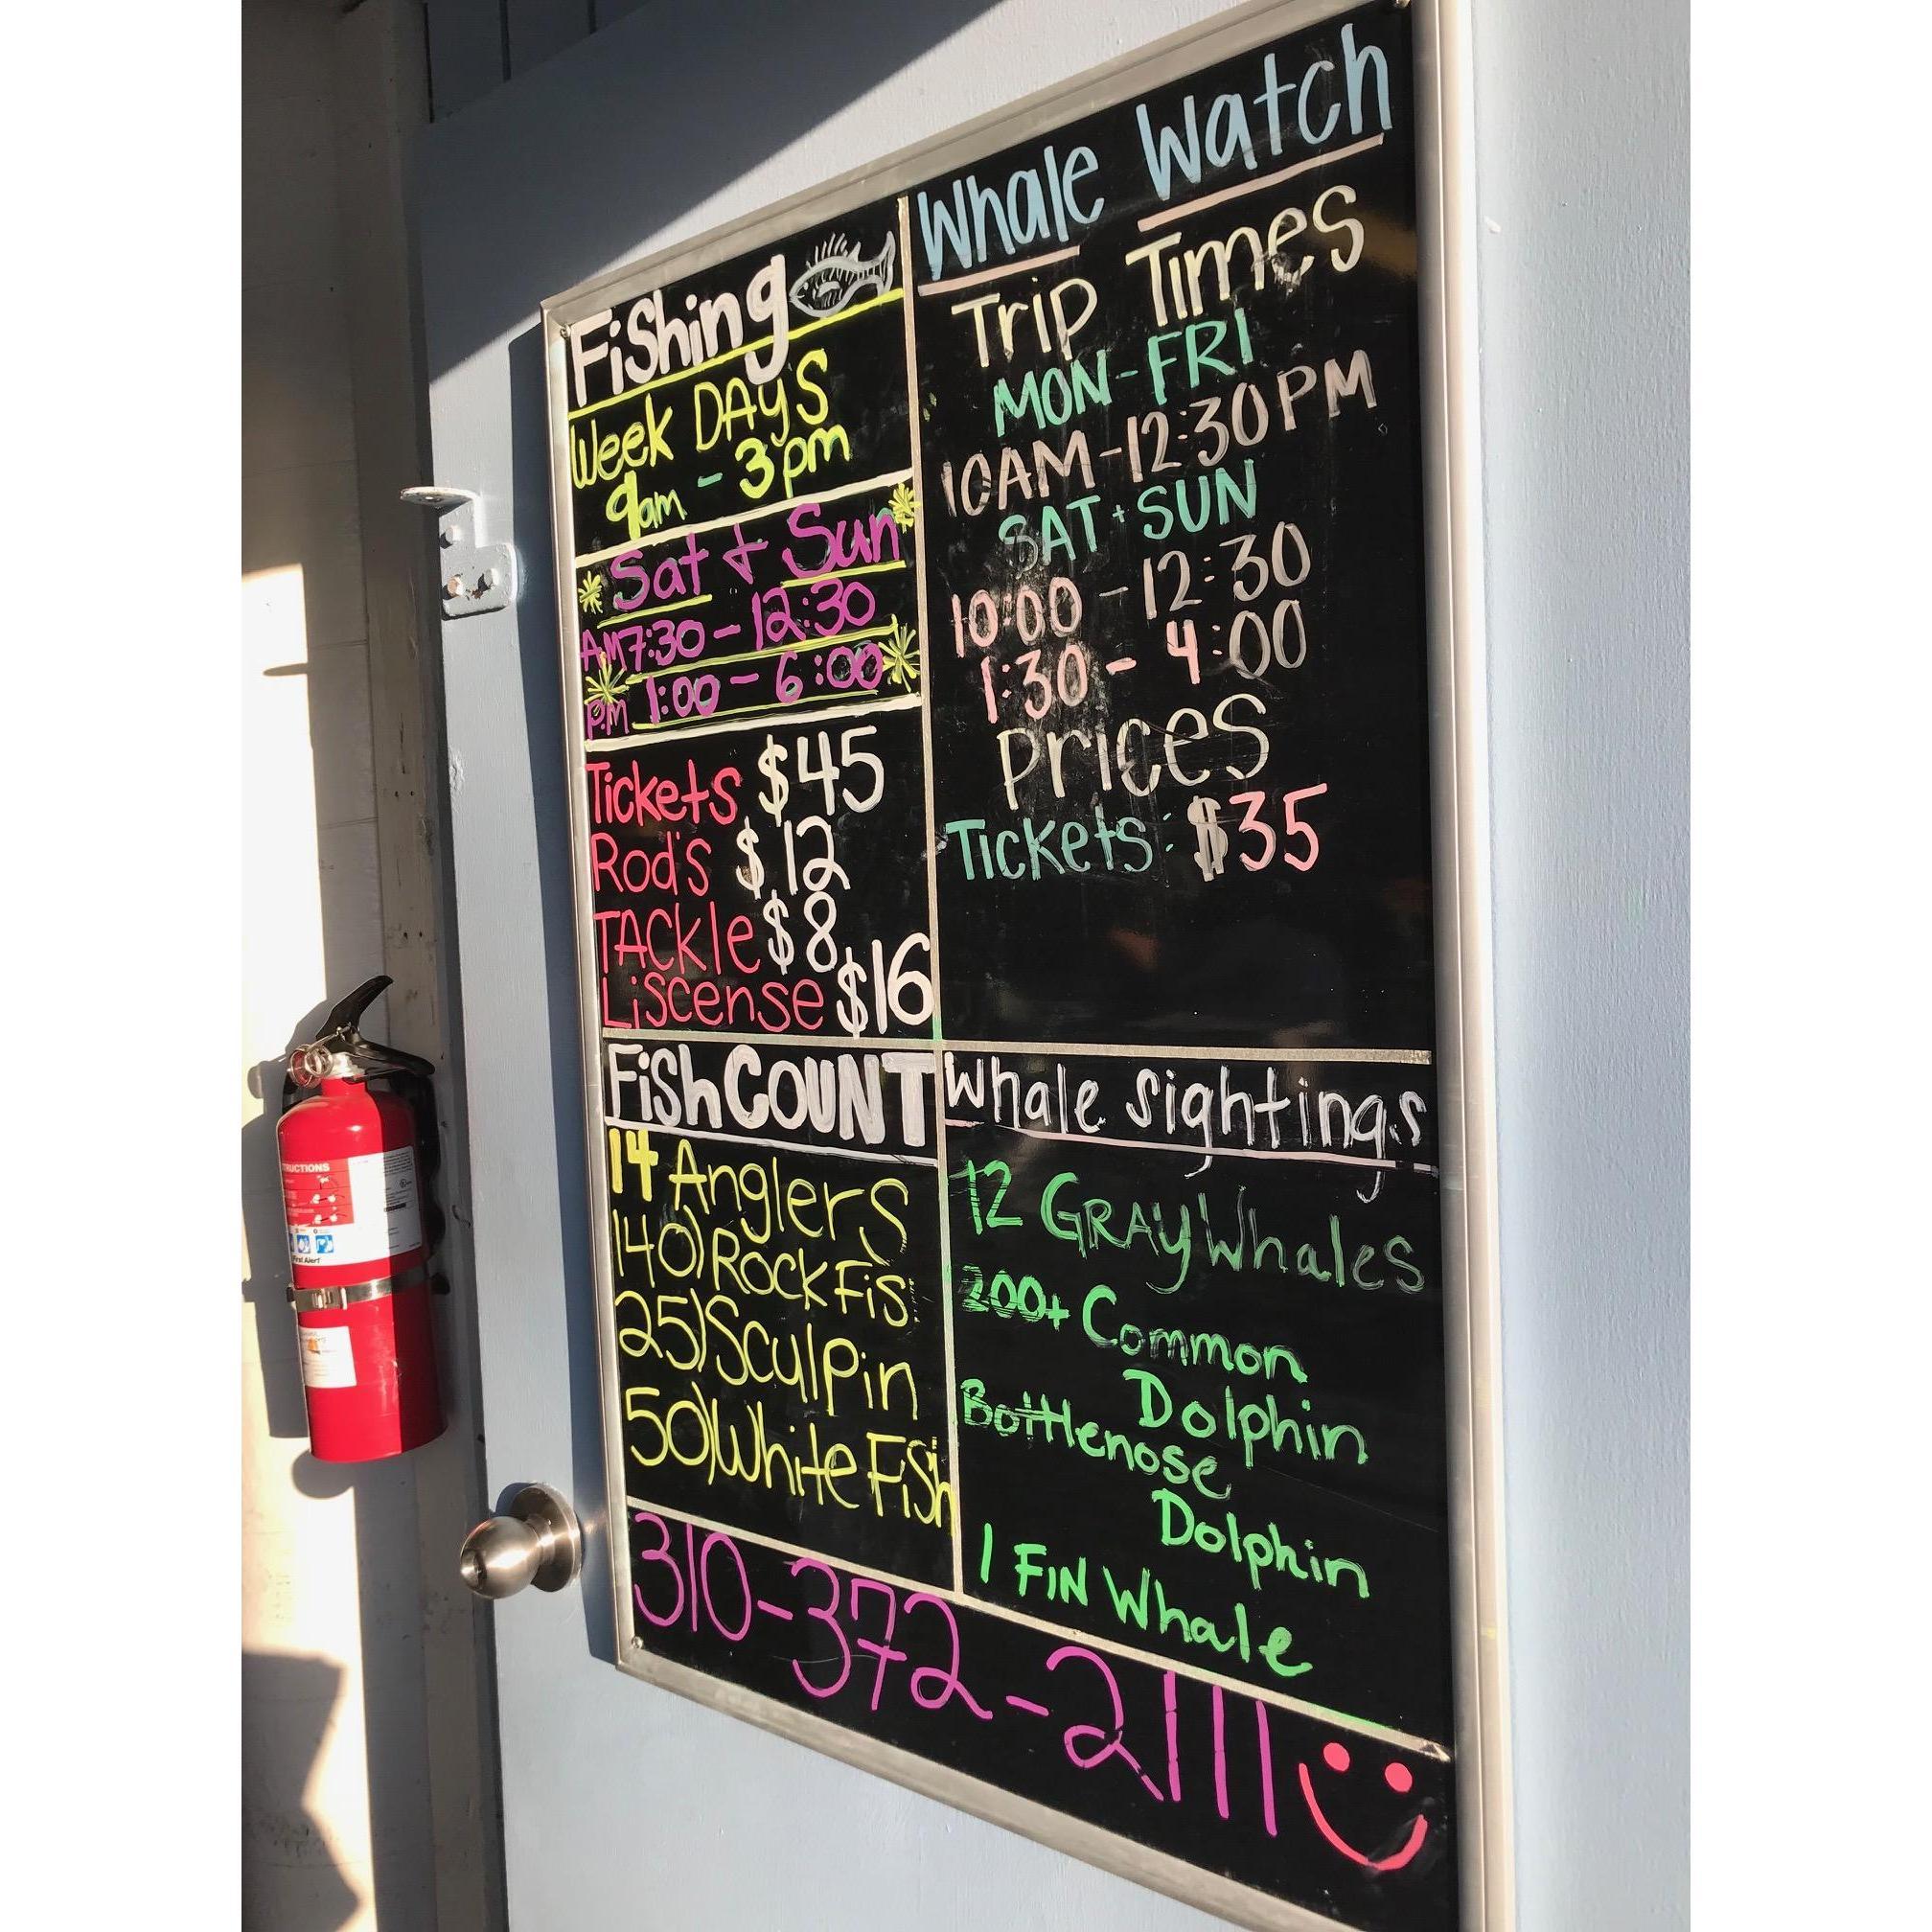 Fishing
Week DAyS
9am - 3pm
Sat + Sun
AM 7:30 - 12:30
PM 1:00 - 6:00
Tickets $45
Rod's $12
TACkle $8
Liscense $16
Whale Watch
Trip Times
MON-FRI
10AM-12:30PM
SAT + SUN
10:00 - 12:30
1:30 - 4:00
Prices
Tickets: $35
Fish COUNT
14 Anglers
140) Rock Fis
25) Sculpin
50) White Fish
Whale Sightings
12 GRAY Whales
200+ Common
Dolphin
Bottlenose
Dolphin
1 FIN Whale
310-372-2111
TRUCTIONS
First Alert